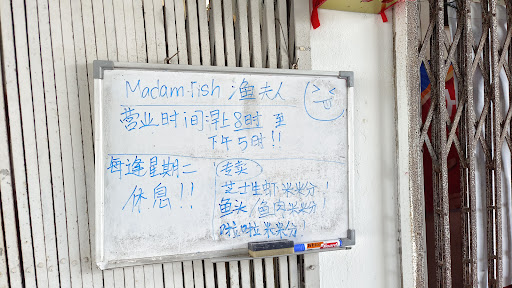 Madam Fish 渔夫人
营业时间:早上8时至
下午5时!!
每逢星期二
休息!!
(专卖)
芝士生虾米米分!
鱼头/鱼肉米米分!
啦啦米米分!